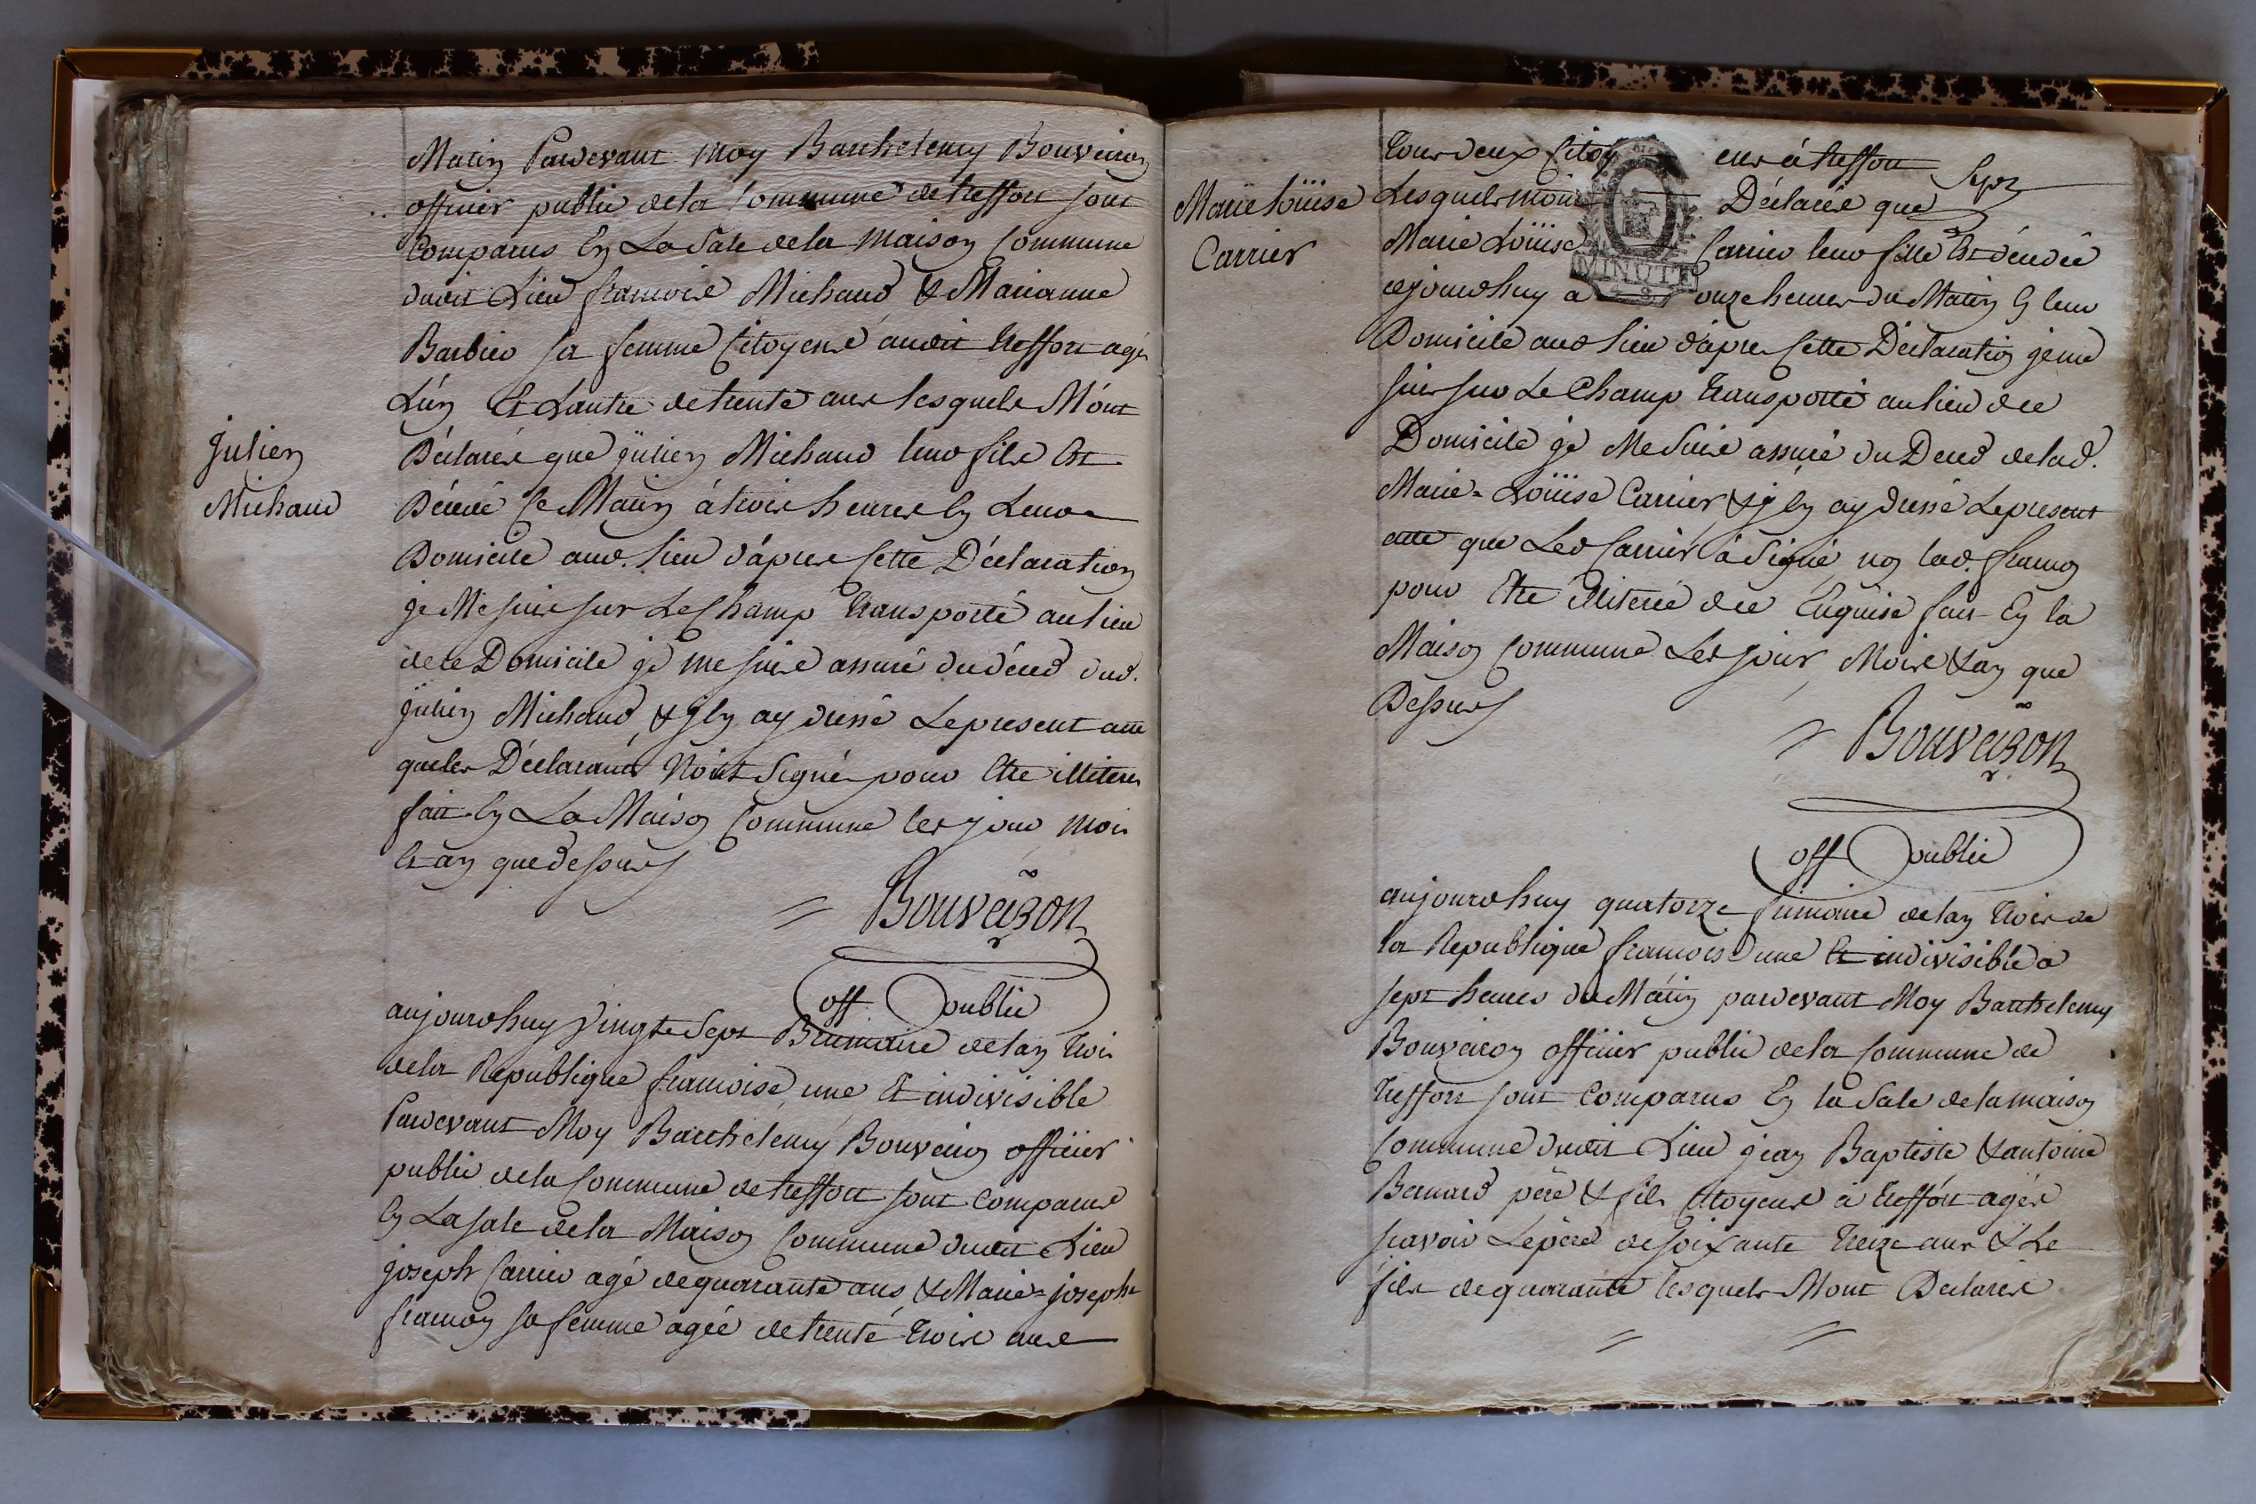 Matin Pardevant Moy Barthelemy Bouveiron
officier public dela Commune de treffort sont
Comparus En La Sale dela maison Commune
dudit Lieu francoise Michaud & Marianne
Barbier sa femme Citoyens audit treffort agés
L'un Et Lautre de trente ans lesquels M'ont
Déclarés que julien Michaud leur fils Est
Julien
Michaud
Décédé Ce Matin à trois heures En Leur
Domicile aud. Lieu d'apres Cette Déclaration
je Me suis sur Le Champ transporté au lieu
de ce Domicile je me suis assuré du décéd dud.
julien Michaud & j'En ay dressé Le present acte
que les Déclarants N'ont Signé pour Etre illiterés
fait En La Maison Commune les jour mois
Et an que dessus
Bouveiron
off public
aujourdhuy vingte Sept Brumaire delan trois
dela Republique francoise une Et indivisible
Pardevant Moy Barthelemy Bouveiron officier
public dela Commune de treffort sont Comparus
En La sale dela Maison Commune dudit Lieu
joseph Carrier agé de quarante ans & Marie=josephe
framon sa femme agée de trente trois ans
tous deux Citoy ens à treffort
Marie Loüise
Carrier
Sept
Lesquels m'ont Déclarés que
Marie Loüise Carrier leur fille Est décédée
cejourdhuy a onze heures du Matin En leur
Domicile aud Lieu d'apres Cette Déclaration je me
suis sur Le Champ transporté au lieu de ce
Domicile je Me suis assuré du Décéd de lad.
Marie=Loüise Carrier & j'En ay dressé Le present
acte que Led Carrier à Signé non lad. framon
pour Etre illiterée de ce Enquise fait En la
Maison Commune Les jour, Mois & an que
Dessus
MINUTE
Bouveiron
off public
aujourdhuy quatorze frimaire delan trois de
la Republique francoise une Et indivisible a
sept heures du Matin pardevant Moy Barthelemy
Bouveiron officier public dela Commune de
treffort sont Comparus En la Sale dela maison
Commune dudit Lieu jean Baptiste & antoine
Bernard père & fils Citoyens à treffort agés
scavoir Le père de soixante treize ans & Le
fils de quarante lesquels Mont Declarés